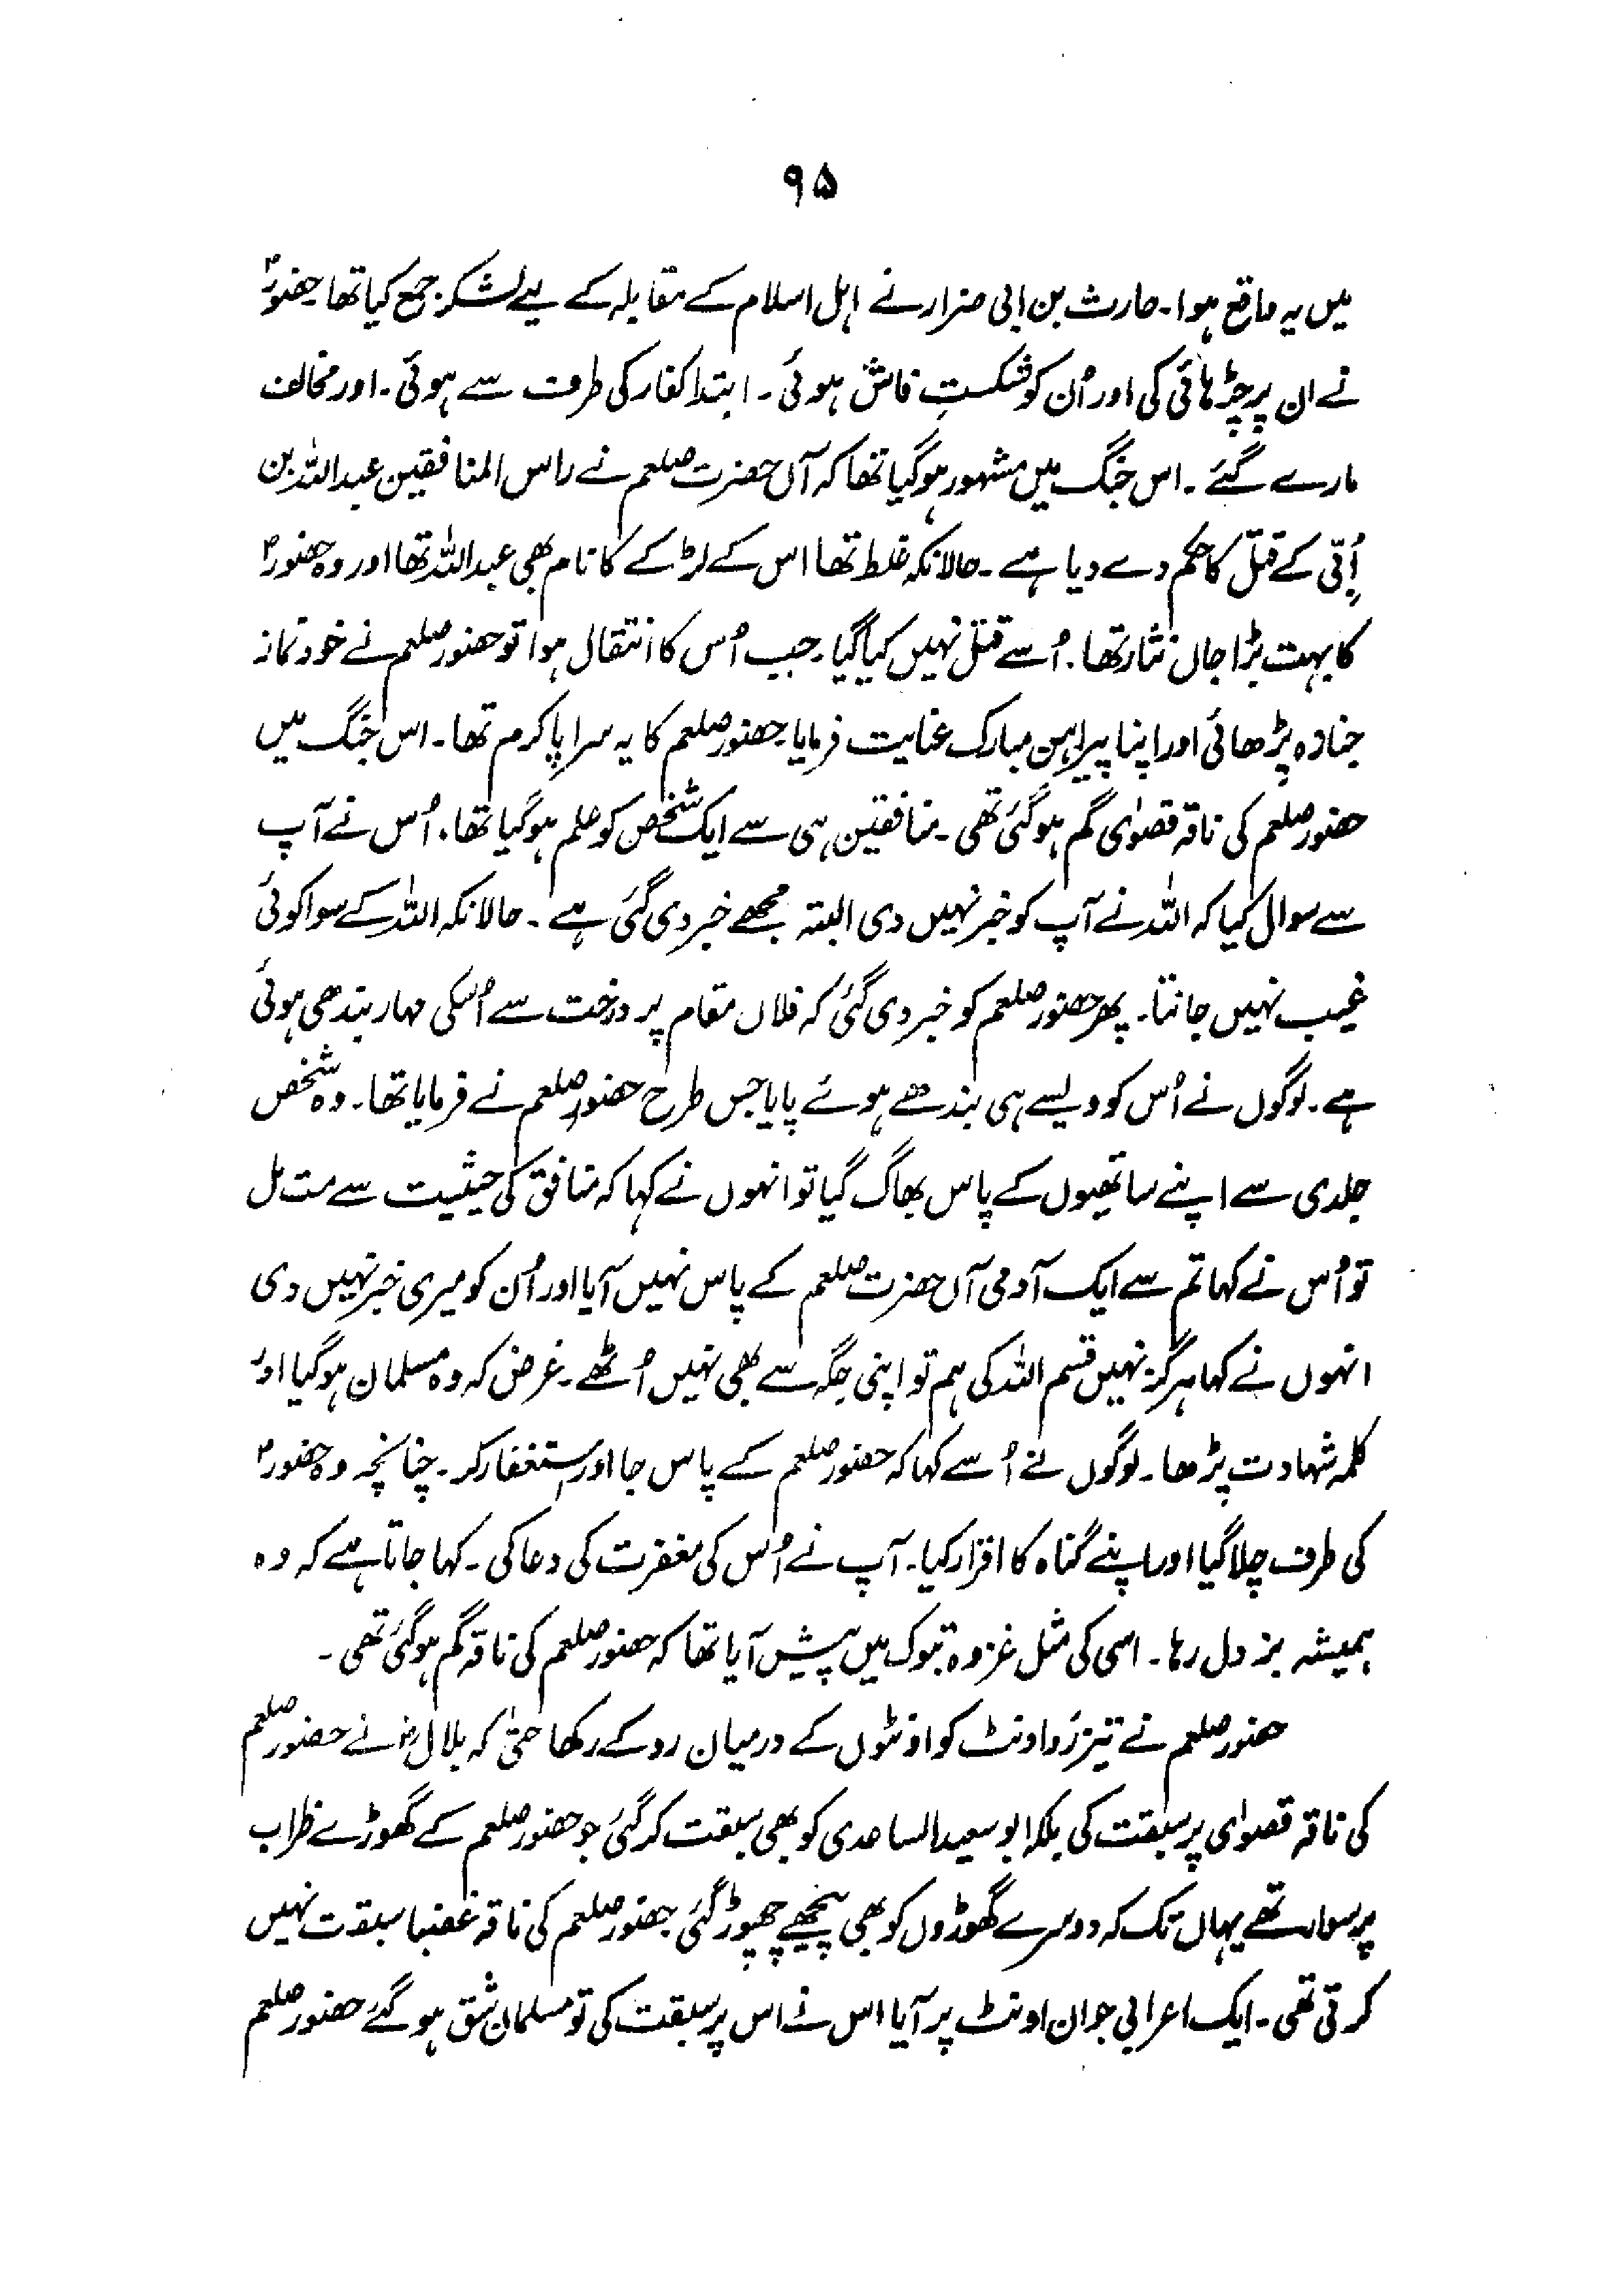 ۹۵
میں یہ واقع ہوا۔ حارث بن ابی ضرار نے اہل اسلام کے مقابلہ کے لیے لشکر جمع کیا تھا حضورؐ
نے ان پر چڑہائی کی اور اُن کو شکستِ فاش ہوئی۔ ابتدا کفار کی طرف سے ہوئی۔ اور مخالف
مارے گئے۔ اس جنگ میں مشہور ہوگیا تھا کہ آں حضرت صلعم نے راس المنافقین عبداللہ بن
اُبّی کے قتل کا حکم دے دیا ہے۔ حالانکہ غلط تھا اس کے لڑکے کا نام بھی عبداللہ تھا اور وہ حضورؐ
کا بہت بڑا جاں نثار تھا۔ اُسے قتل نہیں کیا گیا۔ جب اُس کا انتقال ہوا تو حضور صلعم نے خود نماز
جنازہ پڑھائی اور اپنا پیراہن مبارک عنایت فرمایا۔ حضور صلعم کا یہ سراپا کرم تھا۔ اس جنگ میں
حضور صلعم کی ناقہ قصوٰی گم ہوگئی تھی۔ منافقین ہی سے ایک شخص کو علم ہوگیا تھا۔ اُس نے آپ
سے سوال کیا کہ اللہ نے آپ کو خبر نہیں دی البتہ مجھے خبر دی گئی ہے۔ حالانکہ اللہ کے سوا کوئی
غیب نہیں جانتا۔ پھر حضور صلعم کو خبر دی گئی کہ فلاں مقام پر درخت سے اُسکی مہار بندھی ہوئی
ہے۔ لوگوں نے اُس کو ویسے ہی بندھے ہوئے پایا جس طرح حضور صلعم نے فرمایا تھا۔ وہ شخص
جلدی سے اپنے ساتھیوں کے پاس بھاگ گیا تو انہوں نے کہا کہ منافق کی حیثیت سے مت مل
تو اُس نے کہا تم سے ایک آدمی آں حضرت صلعم کے پاس نہیں آیا اور اُن کو میری خبر نہیں دی
انہوں نے کہا ہرگز نہیں قسم اللہ کی ہم تو اپنی جگہ سے بھی نہیں اُٹھے۔ غرض کہ وہ مسلمان ہوگیا اور
کلمہ شہادت پڑھا۔ لوگوں نے اُسے کہا کہ حضور صلعم کے پاس جا اور استغفار کر۔ چنانچہ وہ حضورؐ
کی طرف چلا گیا اور اپنے گناہ کا اقرار کیا۔ آپ نے اُس کی مغفرت کی دعا کی۔ کہا جاتا ہے کہ وہ
ہمیشہ بز دل رہا۔ اسی کی مثل غزوہ تبوک میں پیش آیا تھا کہ حضور صلعم کی ناقہ گم ہوگئی تھی۔
حضور صلعم نے تیز رَو اونٹ کو اونٹوں کے درمیان روکے رکھا حتیٰ کہ بلالؓ نے حضور صلعم
کی ناقہ قصوٰی پر سبقت کی بلکہ ابو سعید الساعدی کو بھی سبقت کر گئی جو حضور صلعم کے گھوڑے ظراب
پر سوار تھے یہاں تک کہ دوسرے گھوڑوں کو بھی پیچھے چھوڑ گئی حضور صلعم کی ناقہ غضبا سبقت نہیں
کرتی تھی۔ ایک اعرابی جوان اونٹ پر آیا اس نے اس پر سبقت کی تو مسلمان شق ہو گئے حضور صلعم